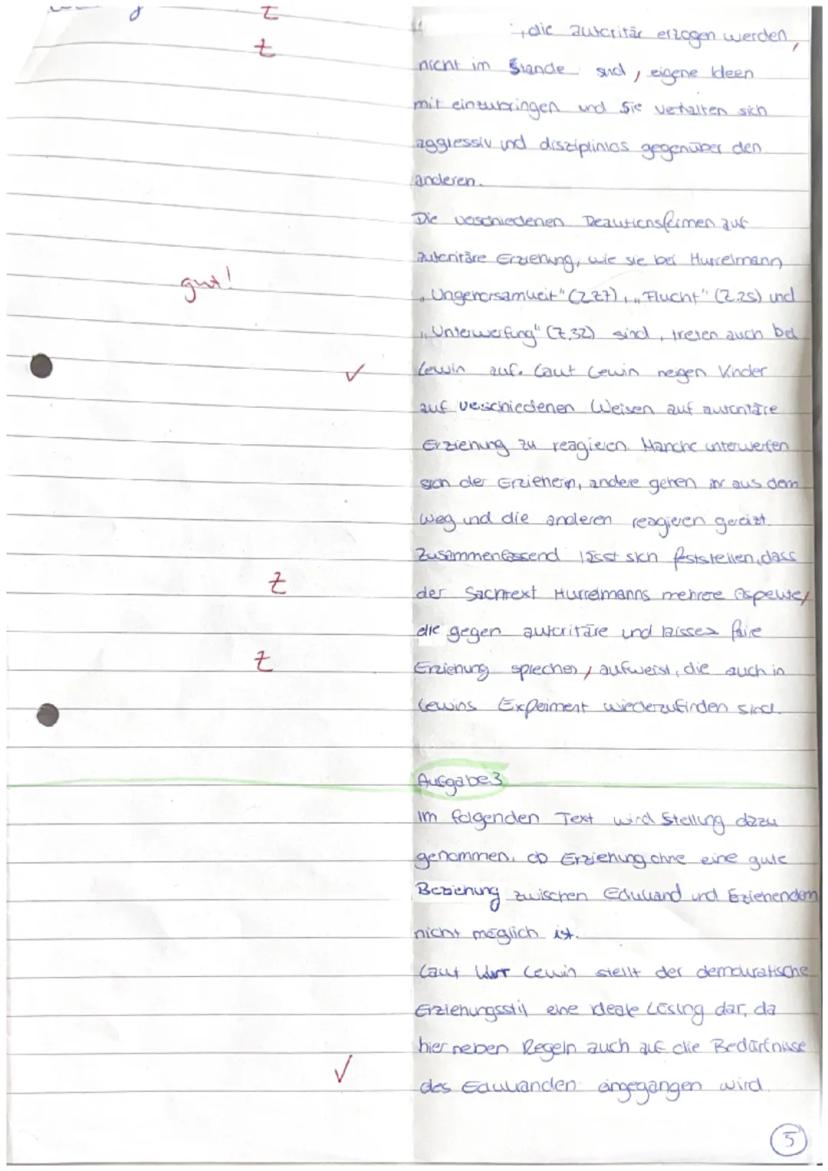 Z
Z
, die autoritär erzogen werden,
nicht im Stande sind, eigene Ideen
mit einzubringen und sie verhalten sich
aggressiv und disziplinlos gegenüber den
anderen.
Die verschiedenen Reaktionsformen auf
autoritäre Erziehung, wie sie bei Hurrelmann
gut!
„Ungehorsamkeit" (Z.27), „Flucht" (Z.25) und
„Unterwerfung" (Z.32) sind, treten auch bei
✓ Lewin auf. Laut Lewin neigen Kinder
auf verschiedenen Weisen auf autoritäre
Erziehung zu reagieren. Manche unterwerfen
sich der Erzieherin, andere gehen ihr aus dem
Weg und die anderen reagieren gereizt.
Zusammenfassend lässt sich feststellen, dass
Z der Sachtext Hurrelmanns mehrere Aspekte,
die gegen autoritäre und laissez faire
Z Erziehung sprechen, aufweist, die auch in
Lewins Experiment wiederzufinden sind.
Aufgabe 3
Im folgenden Text wird Stellung dazu
genommen, ob Erziehung ohne eine gute
Beziehung zwischen Edukand und Erziehenden
nicht möglich ist.
Laut Lewin stellt der demokratische
Erziehungsstil eine ideale Lösung dar, da
hier neben Regeln auch auf die Bedürfnisse
✓ des Edukanden eingegangen wird.
5